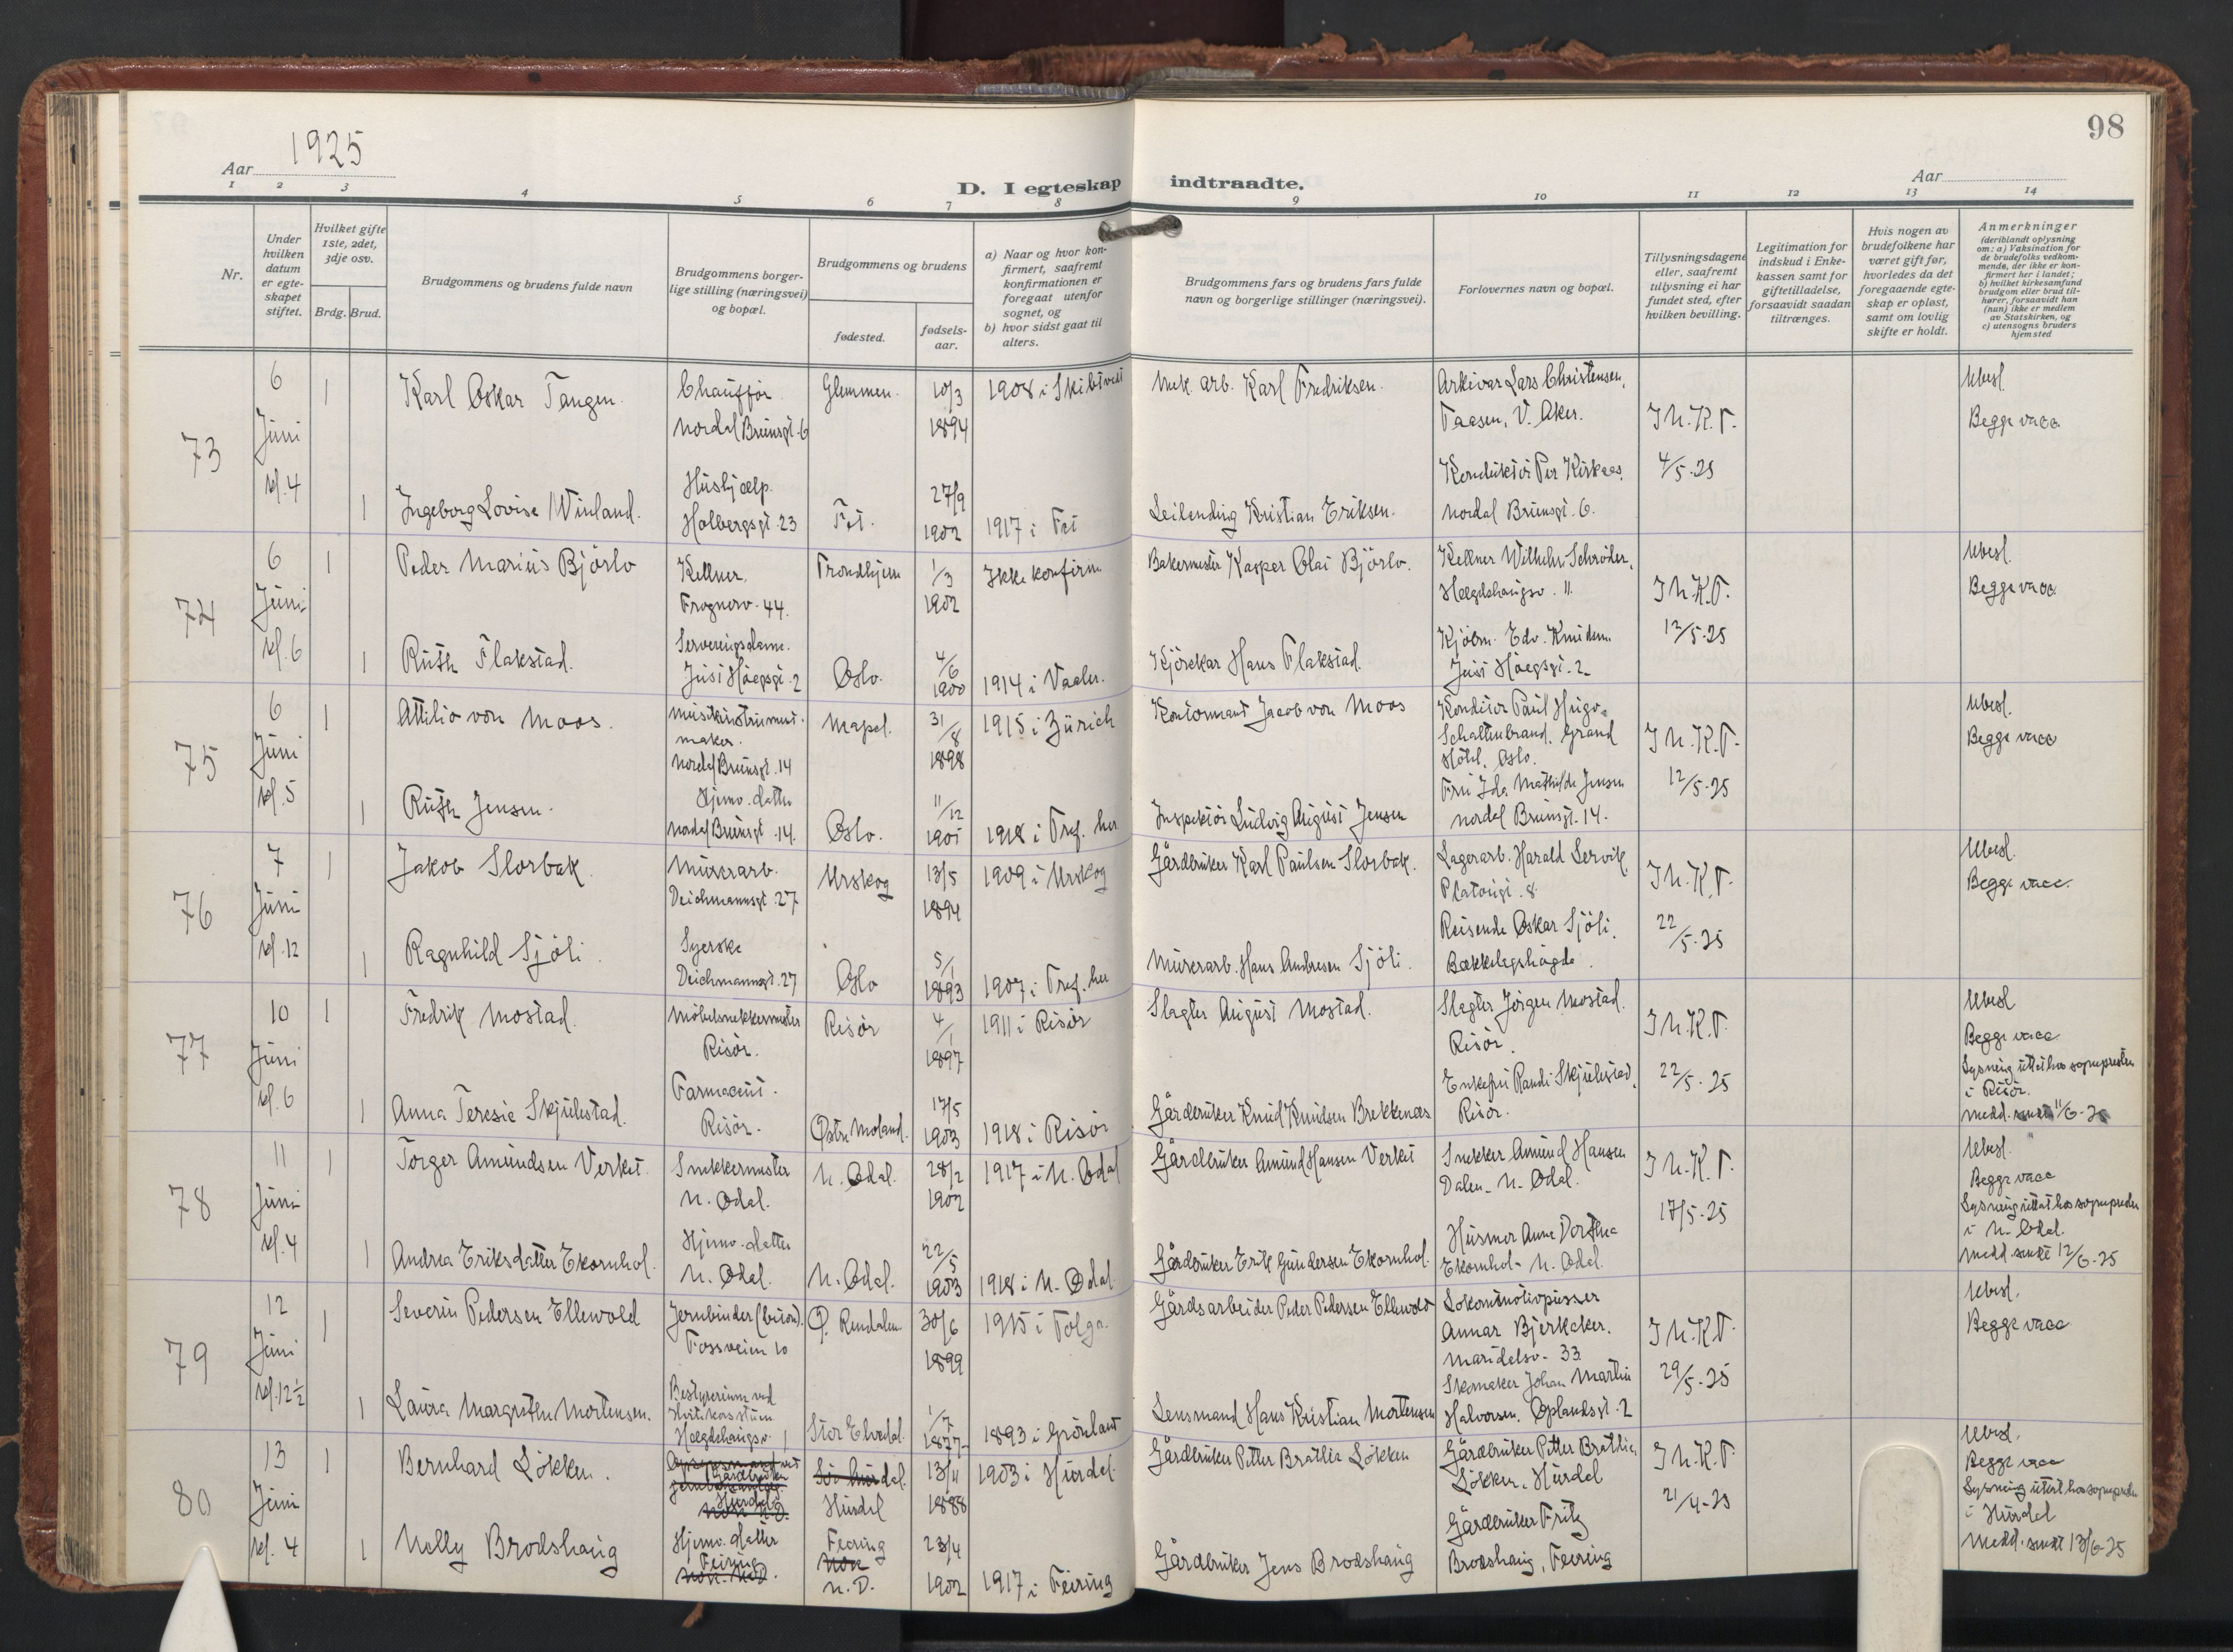 1925
98
Aar
D. I egteskap indtraadte.
Aar
1 2 3 4 5 6 7 8 9 10 11 12 13 14
Nr.
Under hvilken datum er egteskapet stiftet.
Hvilket gifte 1ste, 2det, 3dje osv.
Brdg. Brud.
Brudgommens og brudens fulde navn
Brudgommens borgerlige stilling (næringsvei) og bopæl.
Brudgommens og brudens
fødested.
fødselsaar.
a) Naar og hvor konfirmert, saafremt konfirmationen er foregaat utenfor sognet, og
b) hvor sidst gaat til alters.
Brudgommens fars og brudens fars fulde navn og borgerlige stillinger (næringsvei).
Forlovernes navn og bopæl.
Tillysningsdagene eller, saafremt tillysning ei har fundet sted, efter hvilken bevilling.
Legitimation for indskud i Enkekassen samt for giftetilladelse, forsaavidt saadan tiltrænges.
Hvis nogen av brudefolkene har været gift før, hvorledes da det foregaaende egteskap er opløst, samt om lovlig skifte er holdt.
Anmerkninger
(deriblandt oplysning om: a) Vaksination for de brudefolks vedkommende, der ikke er konfirmert her i landet; b) hvilket kirkesamfund brudgom eller brud tilhører, forsaavidt han (hun) ikke er medlem av Statskirken, og c) utensogns bruders hjemsted
73
6 Juni kl. 4
1
Karl Oskar Tangen.
Chauffør. Nordal Brunsgt. 6
Glemmen.
10/3 1894
1908 i Skibtvedt
Mek. arb. Karl Fredriksen.
Arkivar Lars Christensen, Taasen, V. Aker.
J N. K. T.
4/5-25
Ubesl.
Begge vacc.
1
Ingeborg Lovise Winland.
Hushjælp. Holbergsgt. 23
Fet.
27/9 1902
1917 i Fet
Leilending Kristian Eriksen.
Konduktør Per Kirkaas, Nordal Brunsgt. 6.
74
6 Juni kl. 6
1
Peder Marius Bjørlo
Kellner, Frognerv. 44.
Trondhjem
1/3 1902
Ikke konfirm.
Bakermester Kasper Olai Bjørlo.
Kellner Wilhelm Schrøder, Hægdehaugsv. 11.
J N. K. T.
12/5-25
Ubesl.
Begge vacc.
1
Ruth Flakstad.
Serveringsdame. Just Høegsgt. 2
Oslo.
4/6 1900
1914 i Vaaler.
Kjørekar Hans Flakstad.
Kjøbm. Edv. Knudsen Just Høegsgt. 2
75
6 Juni kl. 5
1
Attilio von Moos.
Musikinstrumentmaker. Nordal Brunsgt. 14
31/8 1898
1915 i Zürich
Kontormand Jacob von Moos
Konditor Paul Hugo Schaltenbrand. Grand Hotel, Oslo.
J N. K. T.
12/5-25
Ubesl.
Begge vacc
1
Ruth Jensen.
Hjemv. datter Nordal Brunsgt. 14.
Oslo.
11/12
1918 i Tref. her
Inspektør Ludvig August Jensen
Fru Ida Mathilde Jensen Nordal Brunsgt. 14.
76
7 Juni kl. 12
1
Jakob Slorbak.
Murerarb. Deichmannsgt. 27
Urskog
13/5 1894
1909 i Urskog
Gårdbruker Karl Paulsen Slorbak.
Lagerarb. Harald Lervik, Platousgt. 8.
J N. K. T.
22/5-25
Ubesl.
Begge vacc.
1
Ragnhild Sjøli.
Syerske Deichmannsgt. 27
Oslo
5/1 1893
1907 i Tref. her
Murerarb. Hans Andresen Sjøli.
Reisende Oskar Sjøli, Bækkelagshøgda.
77
10 Juni kl. 6
1
Fredrik Mostad.
Møbelsnekkermester Risør.
Risør
4/1 1897
1911 i Risør
Slagter August Mostad.
Slagter Jørgen Mostad. Risør.
J N. K. T.
22/5-25
Ubesl
Begge vacc
Lysning uttat hos sognepresten i Risør.
Medd. sendt 11/6-25
1
Anna Teresie Skjulestad.
Farmaceut. Risør.
Østre Moland.
17/5 1903
1918 i Risør
Gårdbruker Knud Knudsen Brekkenæs
Enkefru Randi Skjulestad, Risør.
78
11 Juni kl. 4
1
Torger Amundsen Verket.
Snekkermester N. Odal.
N. Odal.
28/2 1902
1917 i N. Odal
Gårdbruker Amund Hansen Verket
Snekker Amund Hansen Dalen. N. Odal.
J N. K. T.
17/5-25
Ubesl.
Begge vacc
Lysning uttat hos sognepresten i N. Odal.
Medd. sendt 12/6-25
1
Andrea Eriksdatter Ekornhol.
Hjemv. datter N. Odal.
N. Odal.
22/5 1903
1918 i N. Odal
Gårdbruker Erik Gundersen Ekornhol.
Husmor Anne Dorthea Ekornhol. N. Odal.
79
12 Juni kl. 12½
1
Severin Pedersen Ellevold
Jernbinder (beton). Fossveien 10
Ø. Rendalen
30/6 1899
1915 i Tolga.
Gårdsarbeider Peder Pedersen Ellevold
Lokomotivpusser Annar Bjerkeker. Maridalsv. 33.
J N. K. T.
29/5-25
Ubesl.
Begge vacc
1
Laura Margrethe Mortensen.
Bestyrerinne ved Hægdehaugsv. 1
Stor Elvedal.
1/7 1877
1893 i Grønland
Lensmand Hans Kristian Mortensen
Skomaker Johan Martin Halvorsen. Oplandsgt. 2
80
13 Juni kl. 4
1
Bernhard Løkken.
Gårdbruker Hurdal
Hurdal
13/4 1888
1903 i Hurdal
Gårdbruker Petter Bråtlia Løkken
Gårdbruker Petter Bråtlia, Løkken, Hurdal
J N. K. T.
21/4-25
Ubesl.
Begge vacc
Lysning uttat hos sognepresten i Hurdal
Medd. sendt 13/6-25
1
Nelly Brodshaug
Hjemv. datter Feiring
Feiring N. D.
23/4 1902
1917 i Feiring
Gårdbruker Jens Brodshaug
Gårdbruker Fritz Brodshaug, Feiring